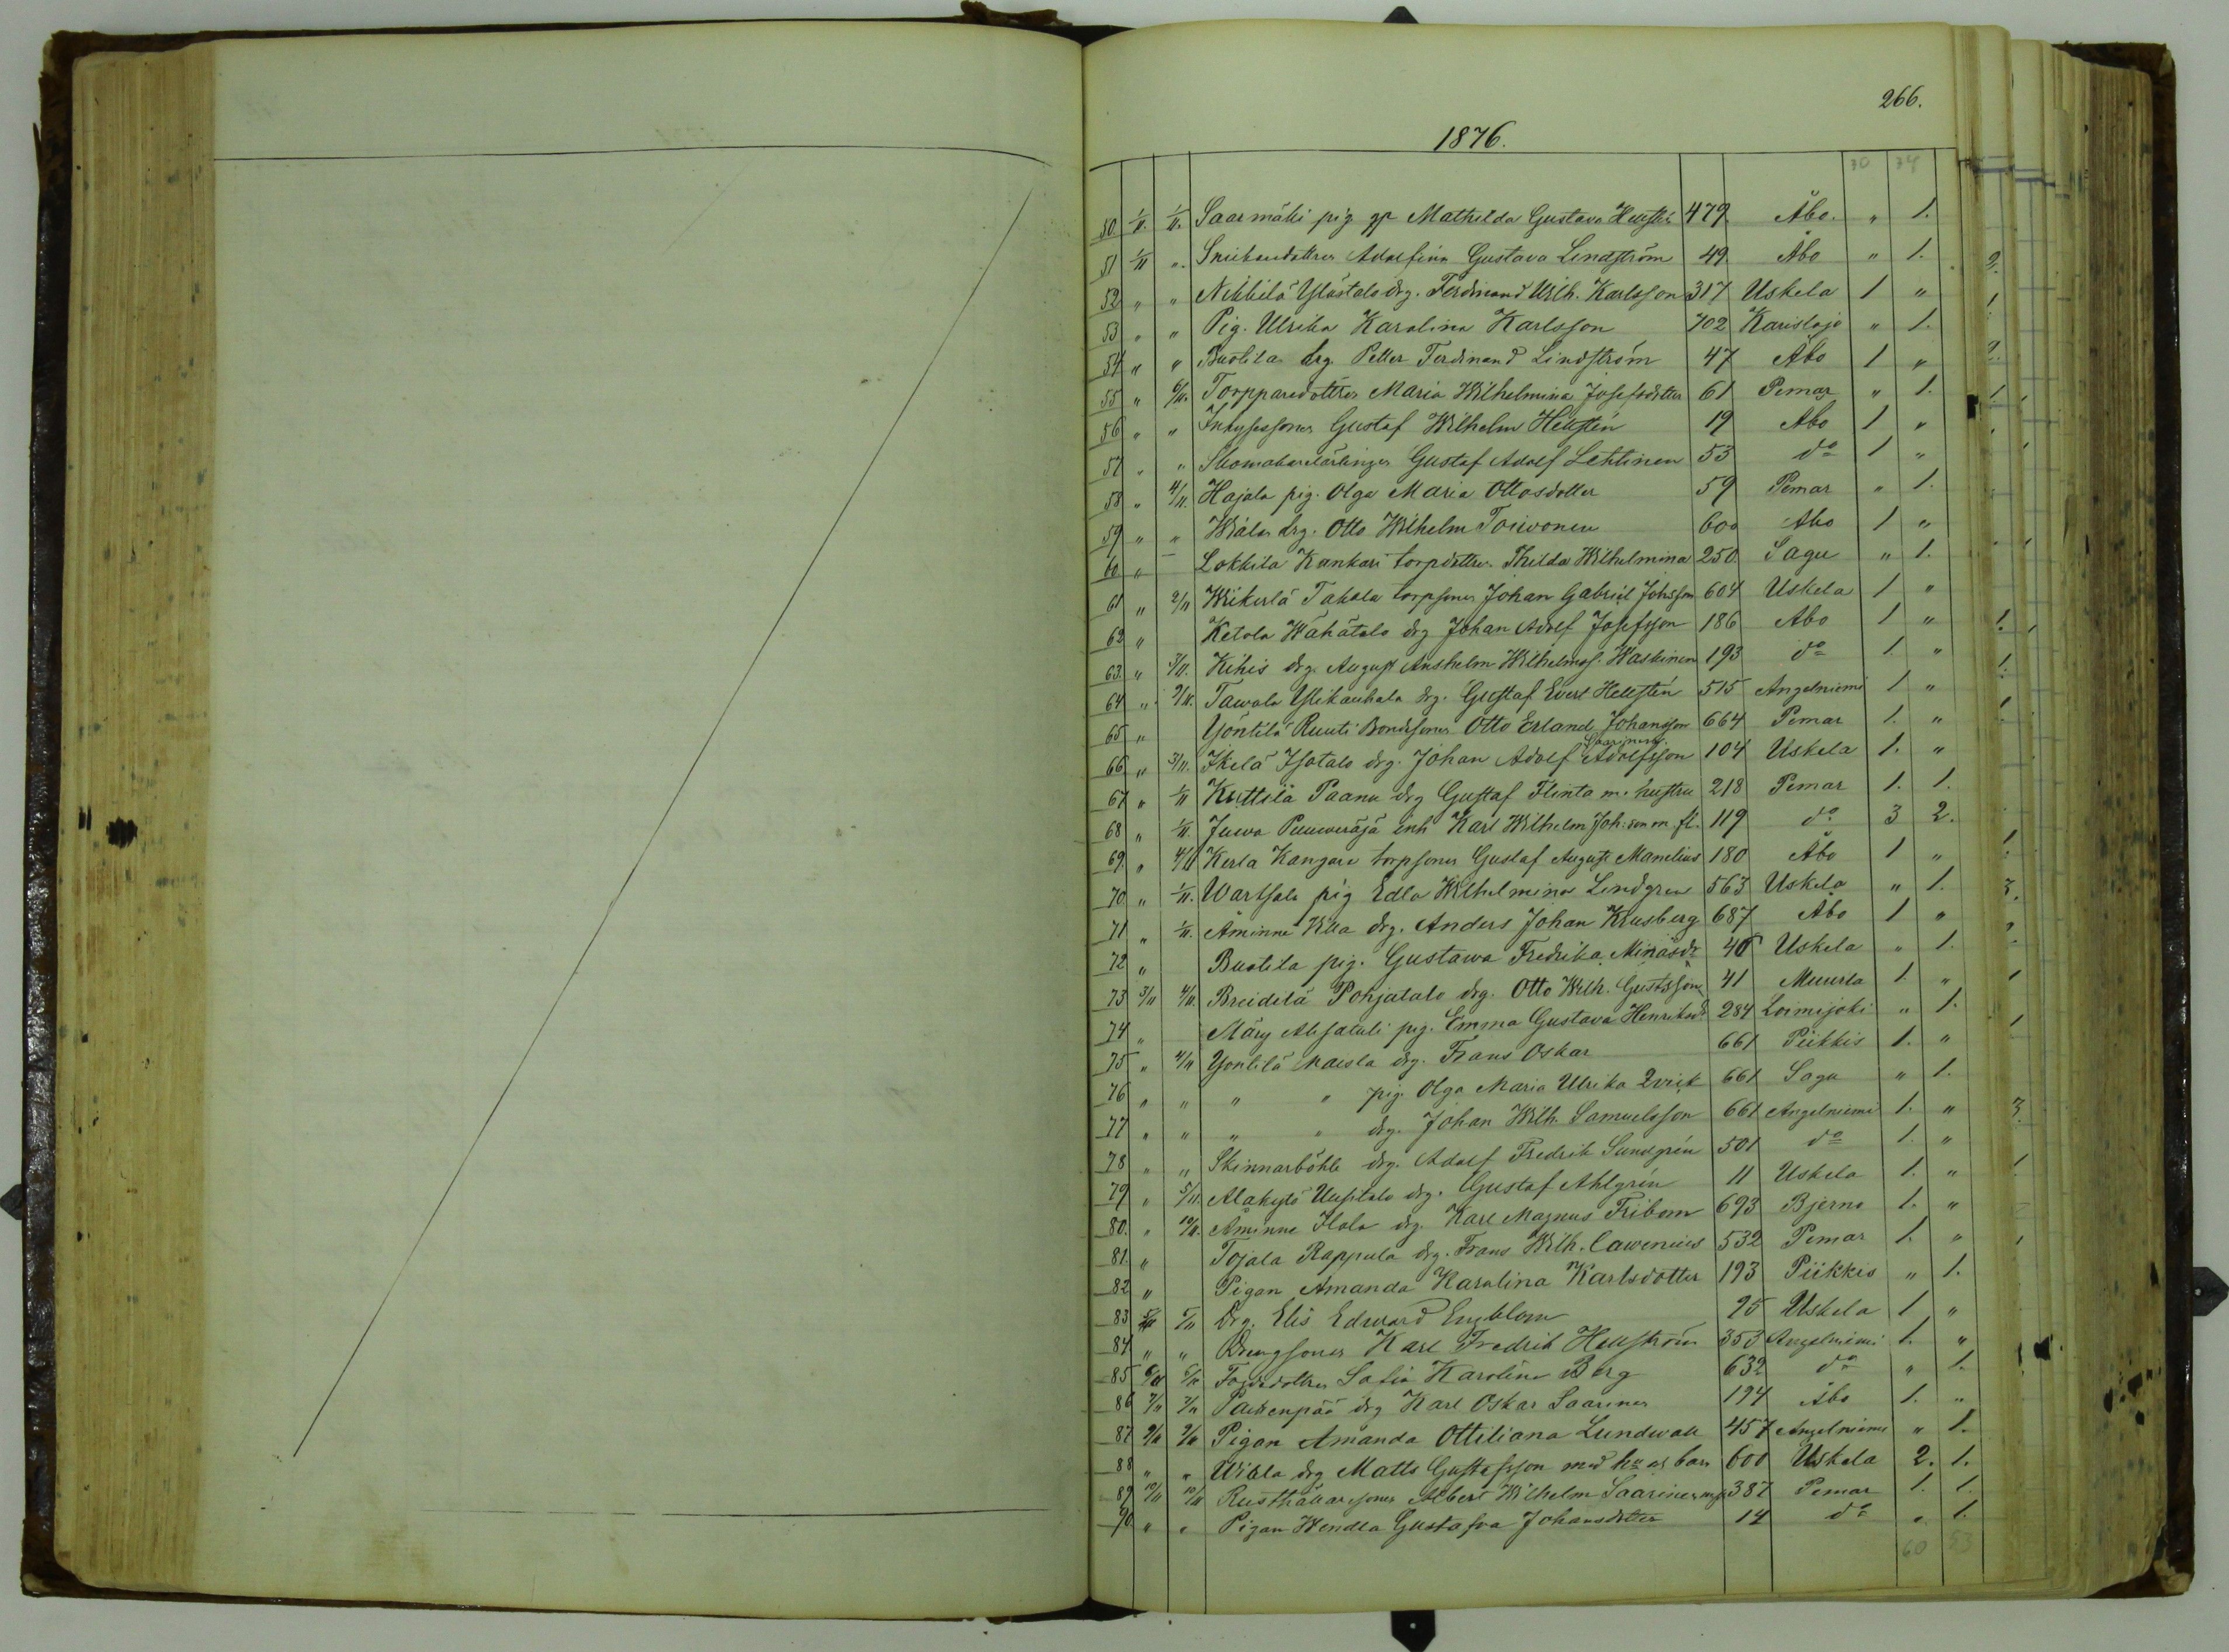 266.
1876.
30 34
50 1/11. 1/11. Saarmäki pig gp Mathilda Gustava Hellstén 479. Åbo. " 1.
51 1/11 ". Snickaredottren Adolfina Gustava Lindström 49. Åbo " 1.
52 " " Nikkilä Ylästalo drg. Ferdinand Wilh. Karlsson 317 Uskela 1 "
53 " " Pig. Ulrika Karolina Karlsson 702 Karislojo " 1.
54 " " Buotila drg. Petter Ferdinand Lindström 47 Åbo 1 "
55 " 6/11. Torpparedottren Maria Wilhelmina Josefsdotter 61 Pemar " 1.
56 " " Inhysessonen Gustaf Wilhelm Hellstén 19 Åbo 1 "
57 " " Skomakarelärlingen Gustaf Adolf Lehtinen 53 do 1 "
58 " 4/11. Hajala pig. Olga Maria Ottosdotter 59 Pemar " 1.
59 " " Wiala drg. Otto Wilhelm Toivonen 600 Åbo 1 "
60 " – Lokkila Kankari torpdottr. Thilda Wilhelmina 250 Sagu " 1.
61 " 2/11 Wikerlä Takala torpsonen Johan Gabriel Johsson 604 Uskela 1 "
62 " Ketola Wähätalo drg Johan Adolf Josefsson 186 Åbo 1 "
63. " 3/11. Kihis drg. August Anshelm Wilhelmss. Waskinen 193 do 1 "
64 " 9/11. Tawola Ylikauhala drg. Gustaf Evert Hellstén 515 Angelniemi 1 "
65 " Yöntilä Ruuti Bondsonen Otto Erland Johansson 664 Pemar 1. "
Saarinen
66 " 3/11. Ikelä Isotalo drg. Johan Adolf Adolfsson 104 Uskela 1. "
67 " 1/11 Kuttila Paanu drg Gustaf Flinta m. hustru 218 Pemar 1. 1.
68 " 1/11. Juwa inh Karl Wilhelm Joh:son m. fl. 119 do 3 2.
69 " 4/11 Kerla Kangare torpsonen Gustaf August Manelius 180 Åbo 1 "
70 " 1/11. Wartsala pig Edla Wilhelmina Lindgren 563 Uskela " 1.
71 " 1/11. Åminne drg. Anders Johan Krusberg 687 Åbo 1 "
72 " Buotila pig. Gustawa Fredrika 46 Uskela " 1.
73 3/11 4/11. Breidilä Pohjatalo drg. Otto Wilh. Gustsson 41 Muurla 1. "
74 " Märy Alisatuli pig. Emma Gustava Henriksd. 284 Loimijoki " 1.
75 " 4/11 Yöntilä drg. Frans Oskar 661 Piikkis 1. "
76 " " " " pig. Olga Maria Ulrika Qvick 661 Sagu " 1.
77 " " " " drg. Johan Wilh. Samuelsson 661 Angelniemi 1. "
78 " " Skinnarböhle drg. Adolf Fredrik Sundgrén 501 do 1. "
79 " 5/11. Alakylä Uusitalo drg. Gustaf Ahlgrén 11 Uskela 1. "
80. " 10/11. Åminne Ilola drg. Karl Magnus Fribom 693 Bjerno 1. "
81. " Tojala Rappula drg. Frans Wilh. Cawenius 532 Pemar 1. "
82 " Pigan Amanda Karolina Karlsdotter 193 Piikkis " 1.
83 5/11 5/11 Drg. Elis Edward Engblom 95 Uskela 1 "
84 " " Drengsonen Karl Fredrik Hellström 353 Angelniemi 1. "
85 6/11 6/11 Torpdottren Sofia Karolina Berg 632 do " 1.
86 7/11 7/11 Paddenpää drg Karl Oskar Saarinen 194 Åbo 1. "
87 9/11 9/11 Pigan Amanda Ottiliana Lundwall 457 Angelniemi " 1.
88 " " Wiala drg Matts Gustafsson med hu o barn 600 Uskela 2. 1.
89 10/11 10/11 Rusthållaresonen Albert Wilhelm Saarinen 387 Pemar 1. 1.
90 " " Pigan Wendla Gustafva Johansdotter 14 do " 1.
60 53